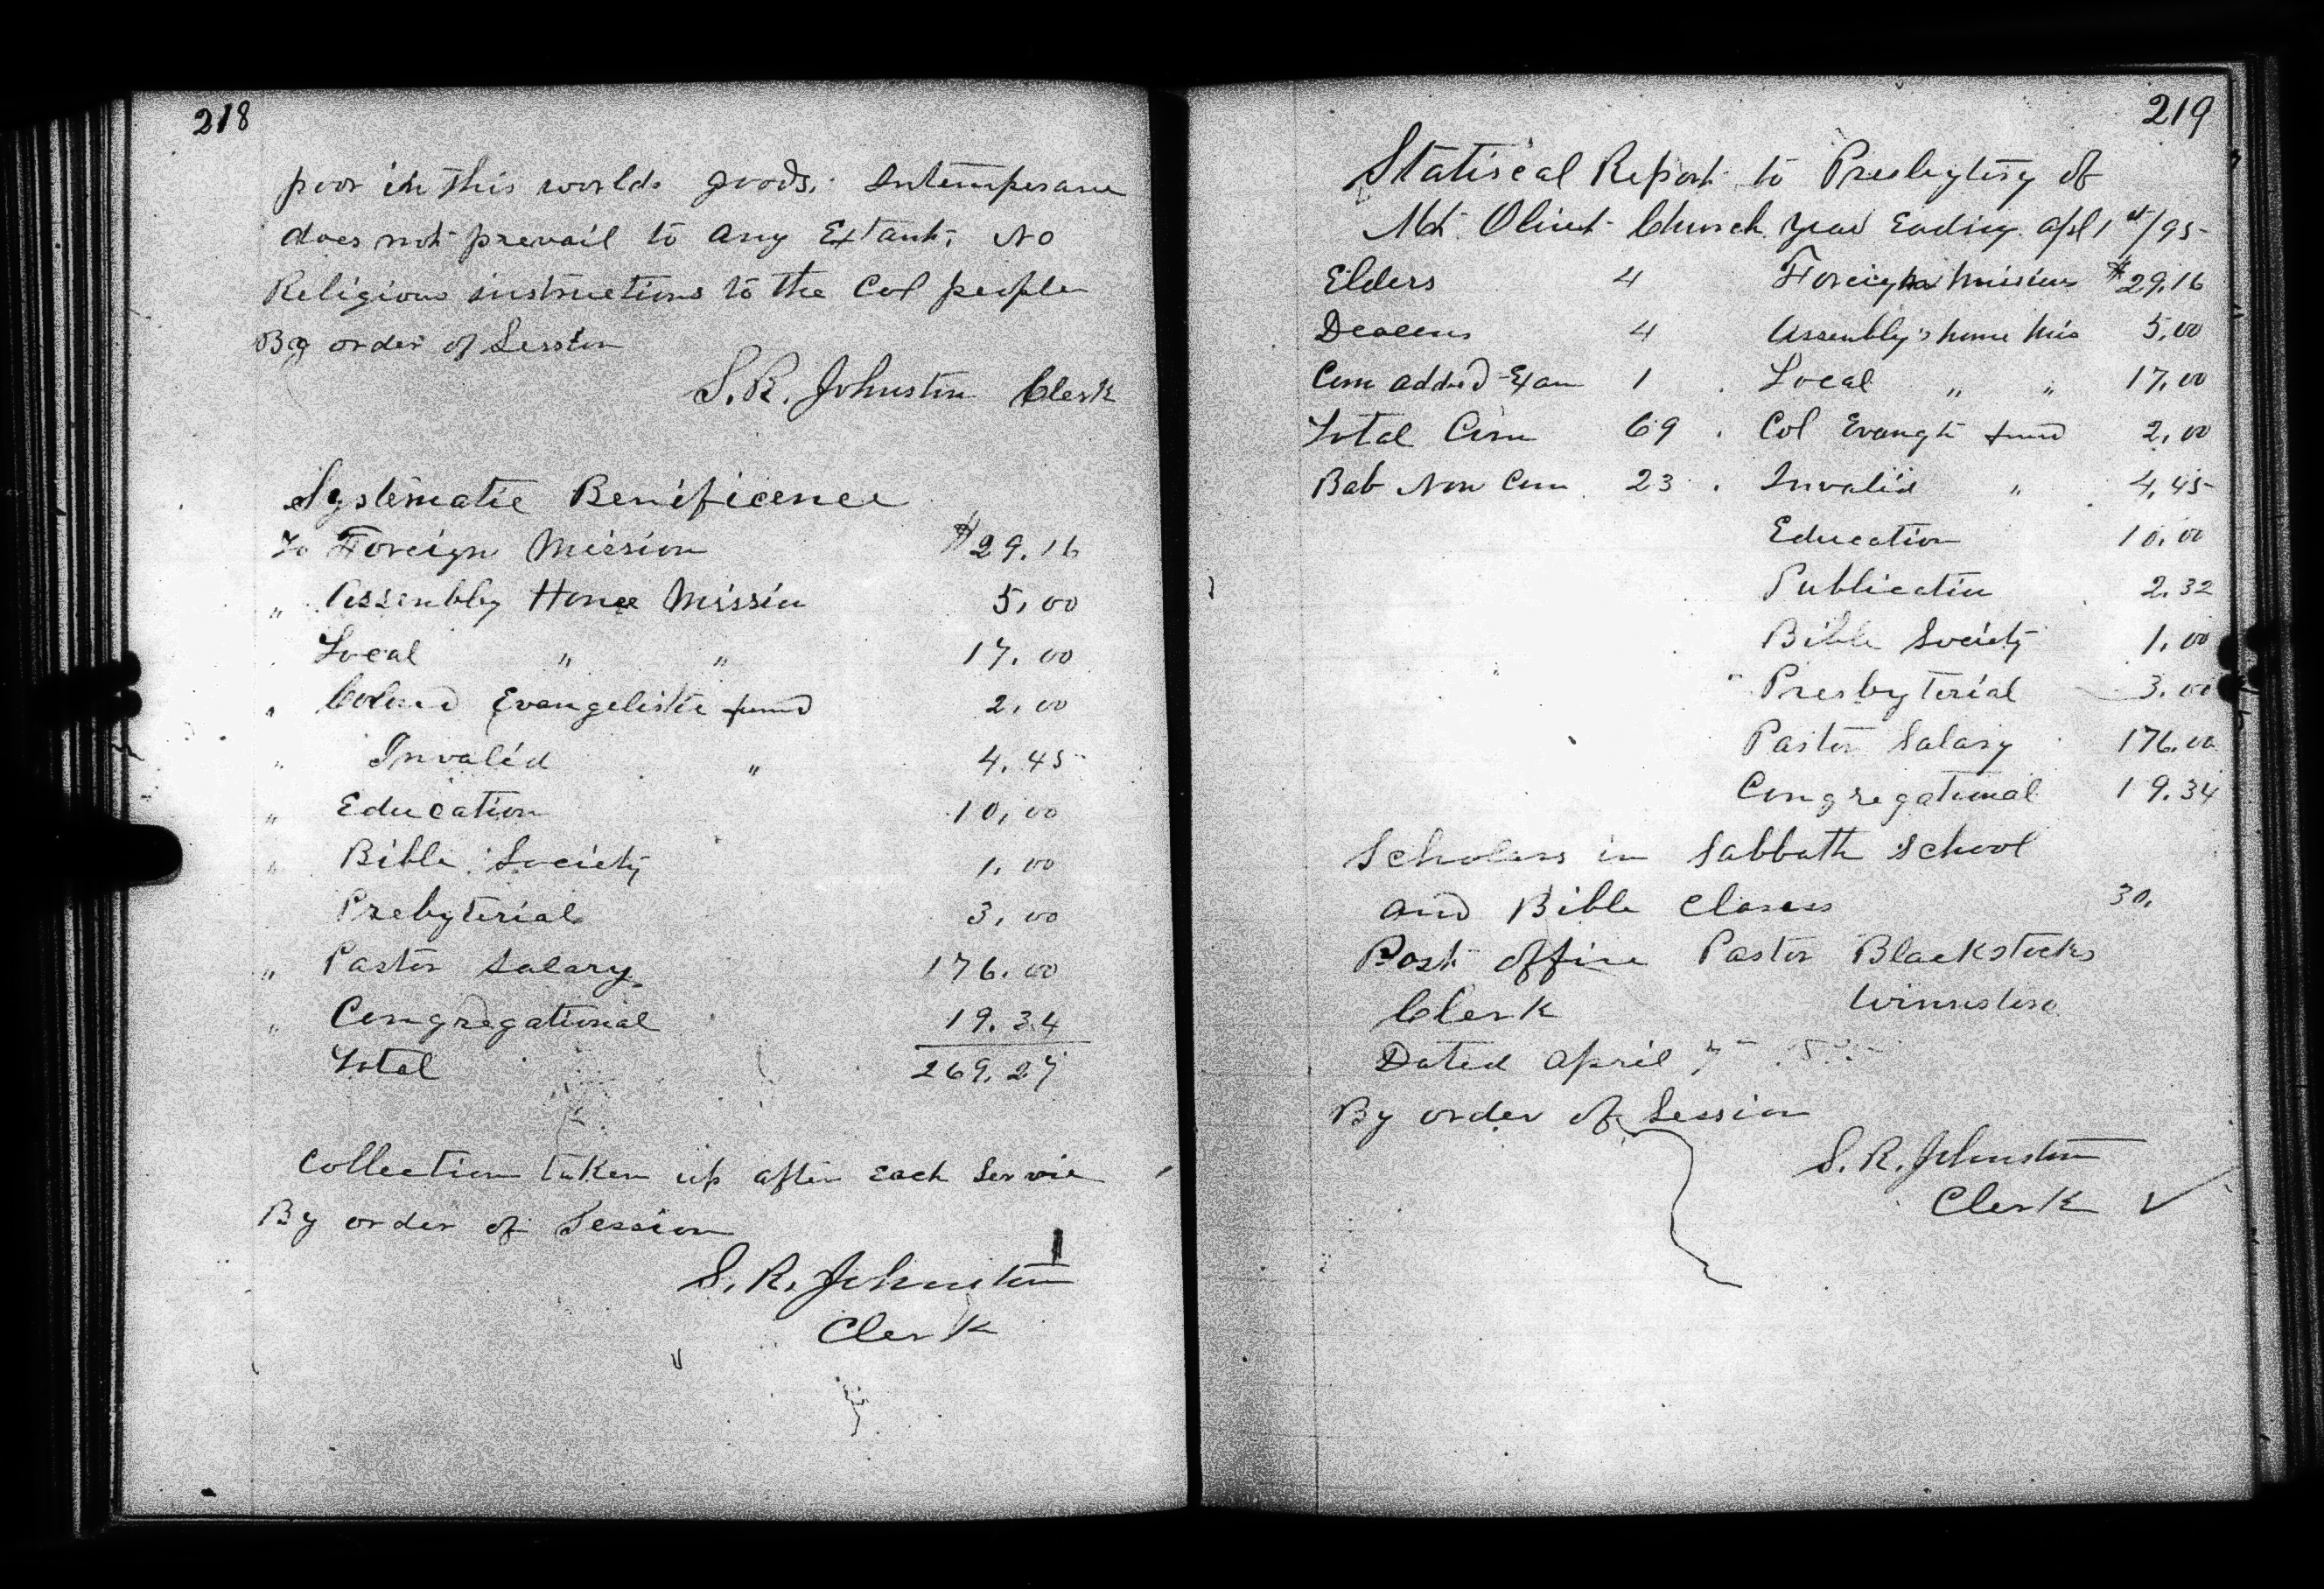 218
poor in this worlds goods. Intemperane
does not prevail to any Extant; No
Religious instructions to the Col people
By order of Session
S. R. Johnston Clerk
Systematic Benificence
To Foreign Mission $29.16
" Assembly Home Missin 5,00
Local " " 17.00
" Colured Evangelistic fund 2,00
" Invalid " 4.45
" Education 10,00
" Bible Society 1.00
Prebyterial 3,00
" Pastor Salary 176.00
" Congregational 19.34
Total 269.27
Collection taken up after each Servie
By order of Session
S. R. Johnston
Clerk
219
Statiscal Report to Presbytery of
Mt Olivet Church year Ending Apl 1st/95
Elders 4 Foreign Missions $29.16
Deacons 4 Assembly's home Mis 5,00
Com added Exam 1 Local " " 17,00
Total Com 69 Col Evangh fund 2,00
Bab Non Com 23 Invalid " 4,45
Education 10,00
Publication 2.32
Bible Society 1,00
" Presbyterial 3.00
Pastor Salary 176.00
Congregational 19.34
Scholars in Sabbath School
and Bible Classes 30.
Post office Pastor Blackstocks
Clerk Winnsboro
Dated April 7
By order of Session
S. R. Johnston
Clerk